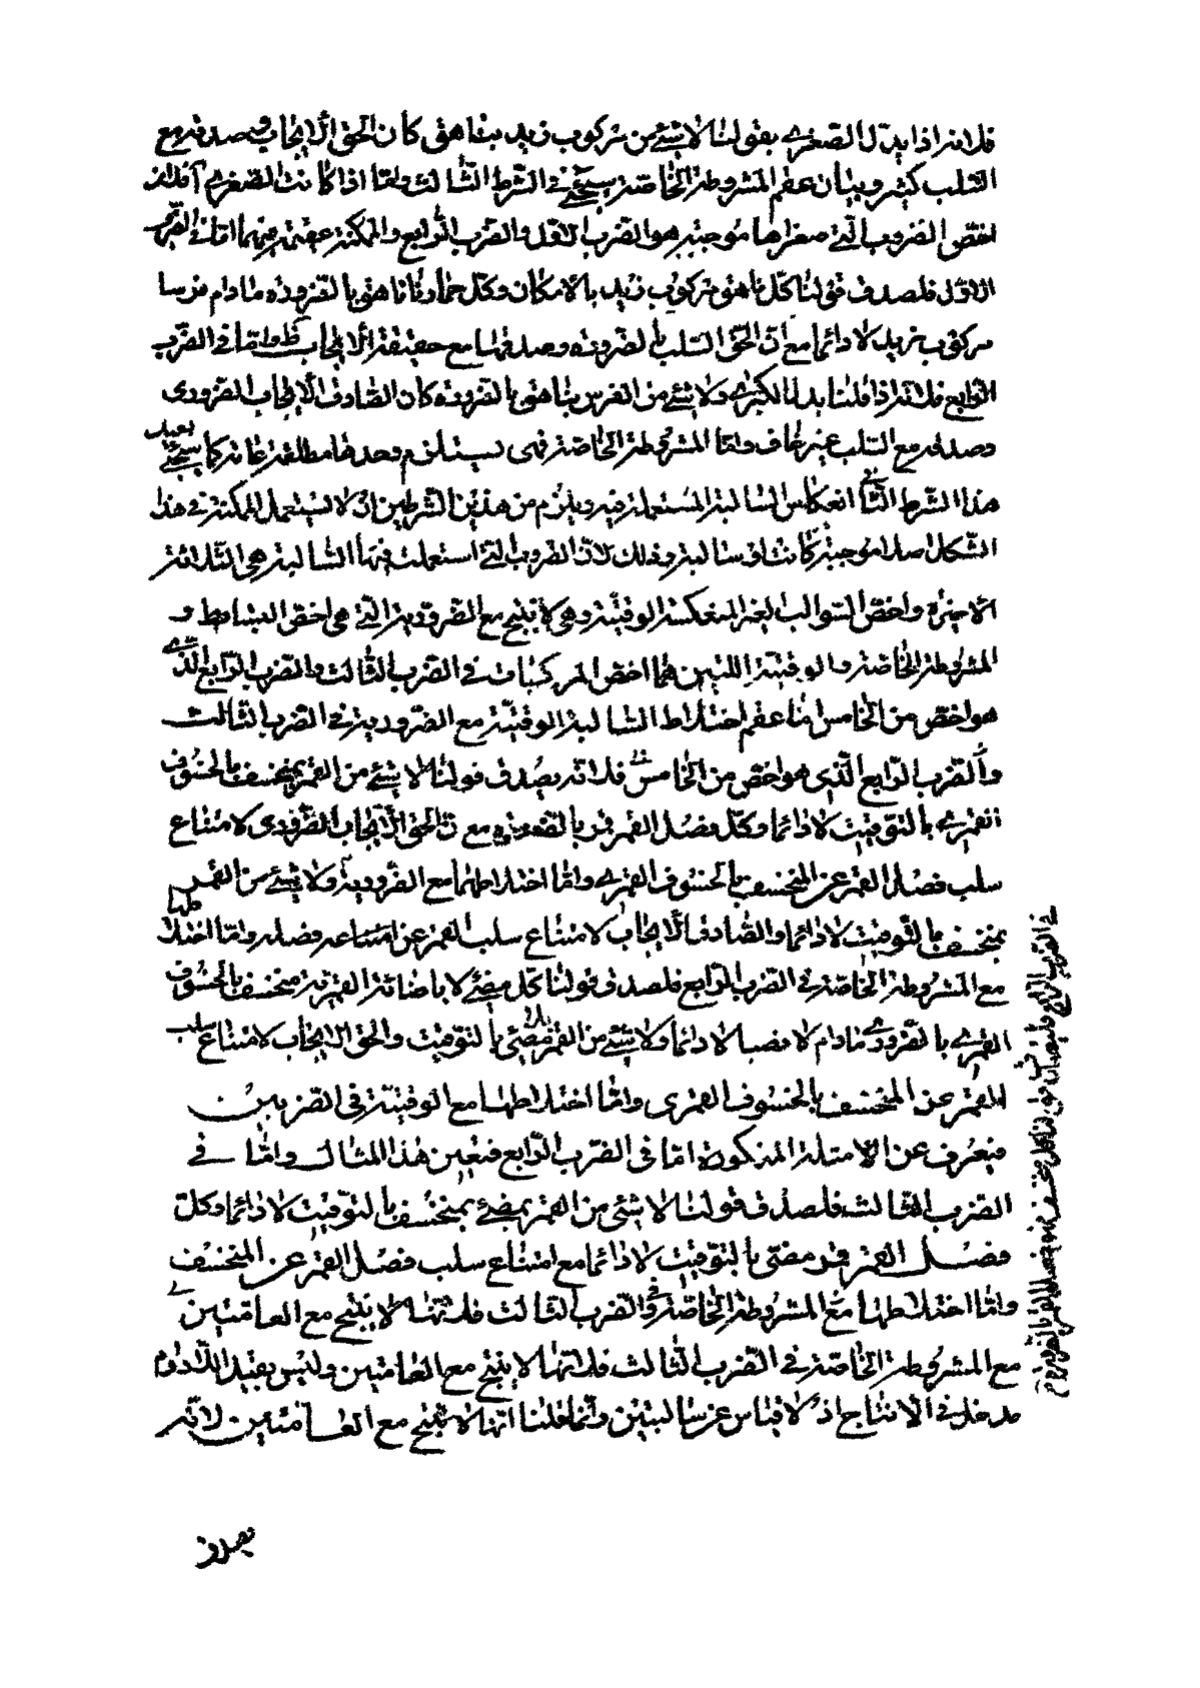 فلانه اذا بدل الصغرى بقولنا لا شئ من مركوب زيد بناهق كان الحق الايجاب وصدقه مع
السلب كثير وبيان عقم المشروطة الخاصة سيجئ فى الشرط الثالث واما اذا كانت الصغرى فلان
اخص الضروب التى صغراها موجبة هو الضرب الاول والضرب الرابع والممكنة عقيمة فيهما اما فى الضرب
الاول فلصدق قولنا كل ناهق مركوب زيد بالامكان وكل حمار ناهق بالضرورة مادام
مركوب زيد لا دائما مع ان الحق السلب بالضرورة وصدقها مع حقيقة الايجاب ظ واما فى الضرب
الرابع فلانه اذا قلنا بدل الكبرى ولا شئ من الفرس بناهق بالضرورة كان الصادق الايجاب الضرورى
وصدقه مع السلب غير خاف واما المشروطة الخاصة فهى تستلزم وحدها مطلقة عامة كما سيجئ بعيد
هذا الشرط الثانى انعكاس السالبة المستعملة فيه ويلزم من هذين الشرطين ان لا تستعمل الممكنة فى هذا
الشكل اصلا موجبة كانت او سالبة وذلك لان الضروب التى استعملت فيها السالبة هى الثلاثة
الاخيرة واخص السوالب الغير المنعكسة الوقتية وهى لا ينتج مع الضرورية التى هى اخص البسائط و
المشروطة الخاصة والوقتية اللتين هما اخص المركبات فى الضرب الثالث والضرب الرابع الذى
هو اخص من الخامس اما عقم اختلاط السالبة الوقتية مع الضرورية فى الضرب الثالث
والضرب الرابع الذى هو اخص من الخامس فلانه يصدق قولنا لا شئ من القمر بمنخسف بالخسوف
القمرى بالتوقيت لا دائما وكل فصل القمر قمر بالضرورة مع ان الحق الايجاب الضرورى لامتناع
سلب فصل القمر عن المنخسف بالخسوف القمرى واما اختلاطها مع الضرورية ولا شئ من القمر
بمنخسف بالتوقيت لا دائما والصادق الايجاب لامتناع سلب القمر عن فصله واما اختلاطها
مع المشروطة الخاصة فى الضرب الرابع فلصدق قولنا كل مضئ لا باضائة القمر فهو منخسف بالخسوف
القمرى بالضرورة مادام لا مضيا لا دائما ولا شئ من القمر بمضئ بالتوقيت والحق الايجاب لامتناع سلب
القمر عن المنخسف بالخسوف القمرى واما اختلاطها مع الوقتية فى الضربين
فيعرف عن الامثلة المذكورة اما فى الضرب الرابع فبعين هذا المثال واما فى
الضرب الثالث فلصدق قولنا لا شئ من القمر بمضئ بمنخسف بالتوقيت لا دائما وكل
فصل القمر قمر مضئ بالتوقيت لا دائما مع امتناع سلب فصل القمر عن المنخسف
واما اختلاطها مع المشروطة الخاصة فى الضرب الثالث فلانها لا ينتج مع العامتين
مع المشروطة الخاصة فى الضرب الثالث فلانها لا ينتج مع العامتين وليس بقيد اللادوام
مدخل فى الانتاج اذ لا قياس عن سالبتين وانما قلنا انها لا ينتج مع العامتين لانه
يصدق